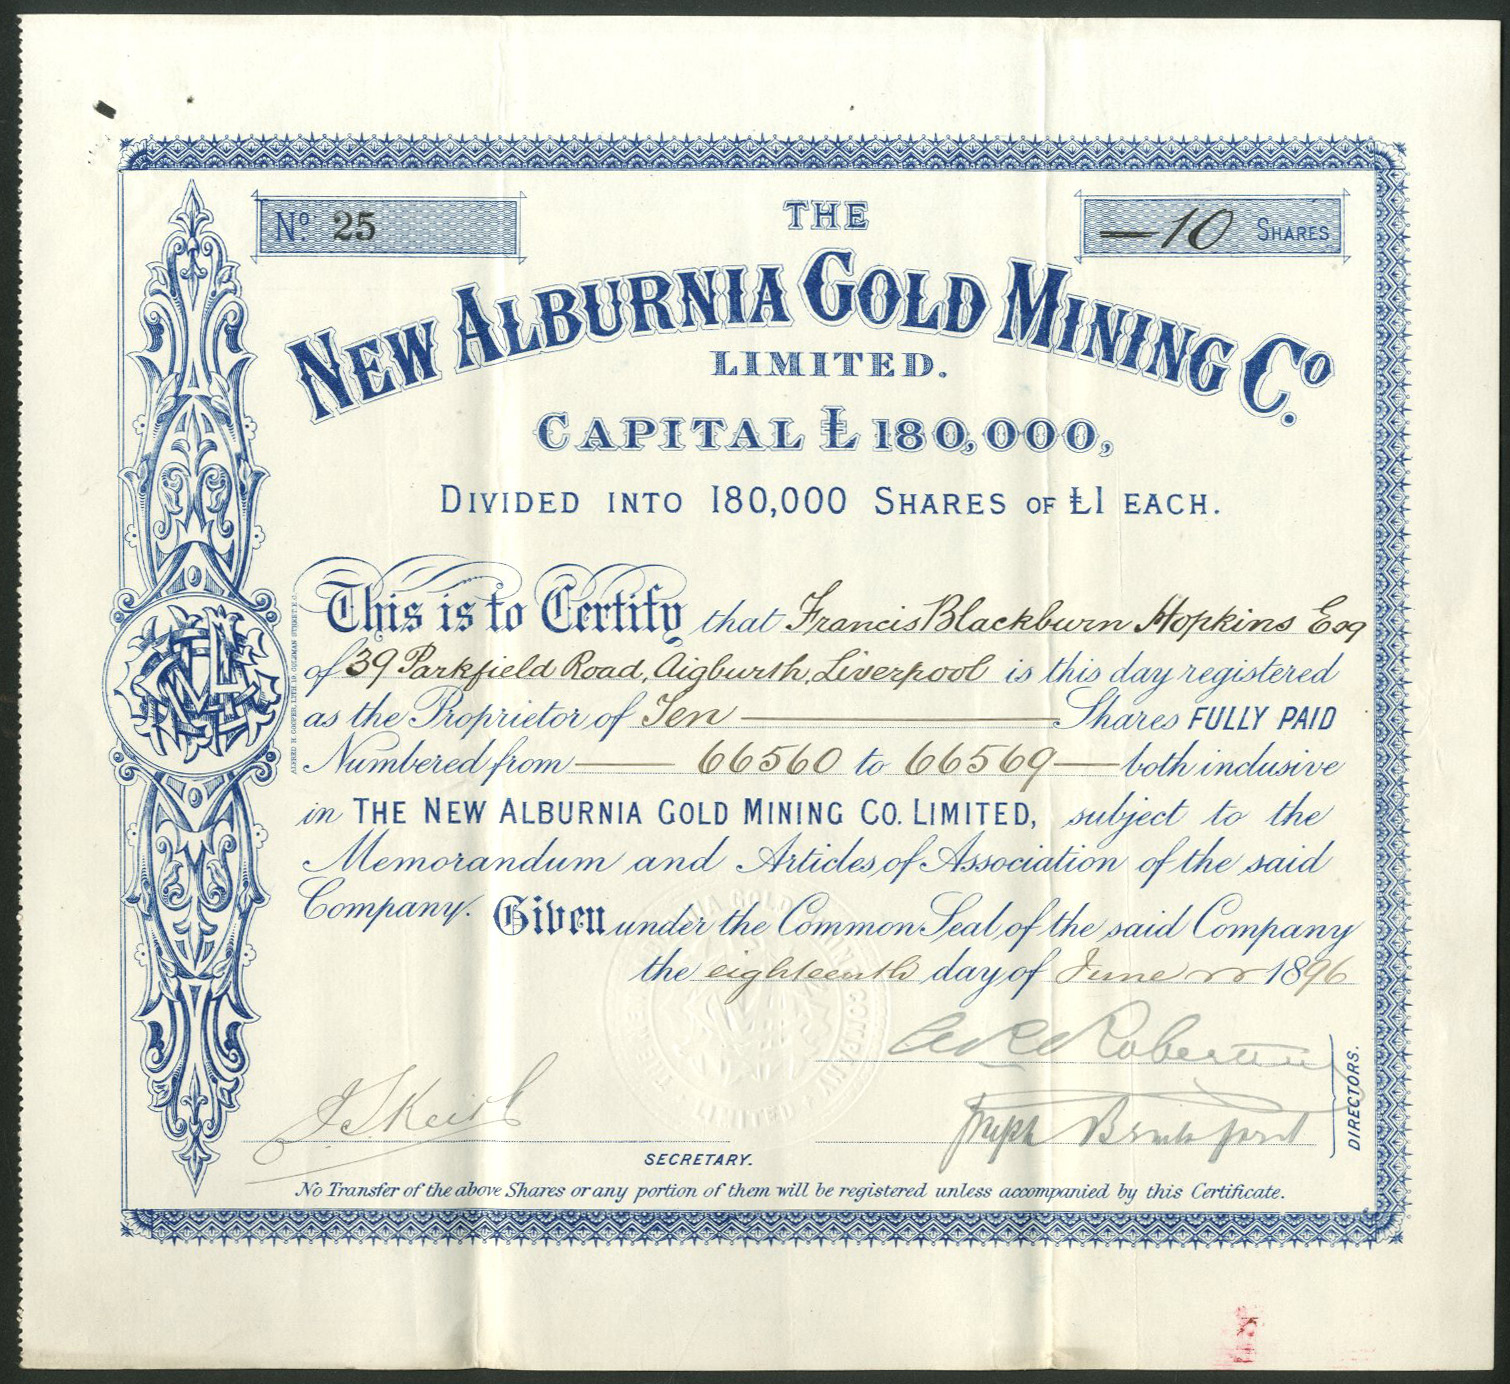 No. 25
— 10 SHARES
THE
NEW ALBURNIA GOLD MINING Co.
LIMITED.
CAPITAL £180,000,
DIVIDED INTO 180,000 SHARES OF £1 EACH.
This is to Certify that Francis Blackburn Hopkins Esq
of 39 Parkfield Road, Aigburth, Liverpool is this day registered
as the Proprietor of Ten — Shares FULLY PAID
Numbered from — 66560 to 66569 — both inclusive
in THE NEW ALBURNIA GOLD MINING CO. LIMITED, subject to the
Memorandum and Articles of Association of the said
Company. Given under the Common Seal of the said Company
the eighteenth day of June 1896
J S Keith
SECRETARY.
DIRECTORS.
No Transfer of the above Shares or any portion of them will be registered unless accompanied by this Certificate.
ALFRED H. COOPER, LITH. COLEMAN STREET E.C.
LIMITED